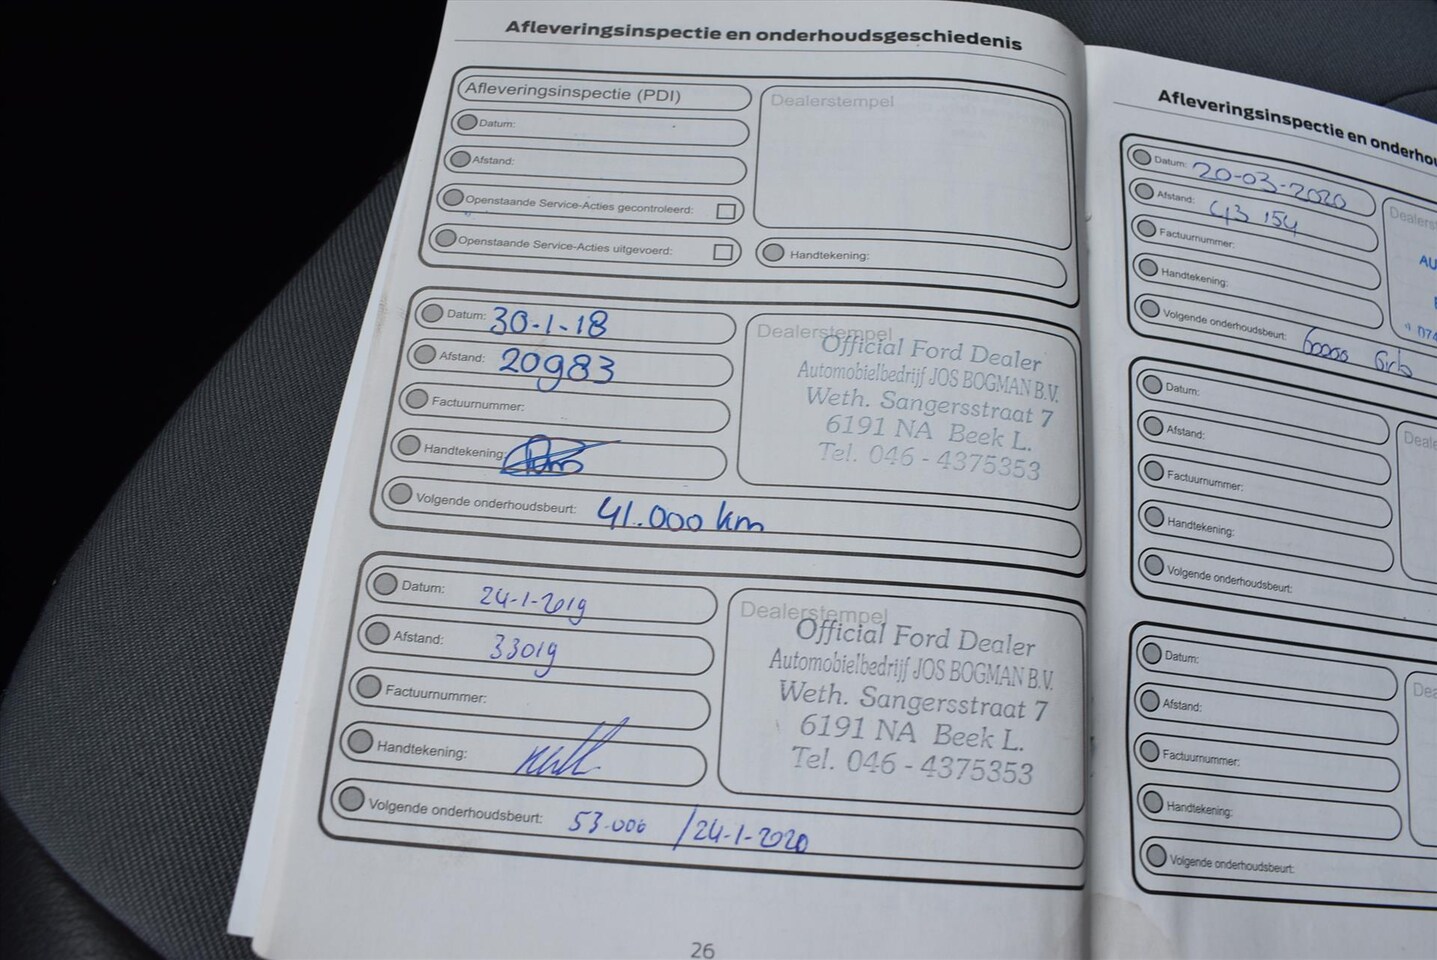 Afleveringsinspectie en onderhoudsgeschiedenis
Afleveringsinspectie (PDI)
Datum:
Afstand:
Openstaande Service-Acties gecontroleerd:
Openstaande Service-Acties uitgevoerd:
Dealerstempel
Handtekening:
Datum: 30-1-18
Afstand: 20983
Factuurnummer:
Handtekening:
Volgende onderhoudsbeurt: 41.000 km
Dealerstempel
Official Ford Dealer
Automobielbedrijf JOS BOGMAN B.V.
Weth. Sangersstraat 7
6191 NA Beek L.
Tel. 046 - 4375353
Datum: 24-1-2019
Afstand: 33019
Factuurnummer:
Handtekening:
Volgende onderhoudsbeurt: 53.000 /24-1-2020
Dealerstempel
Official Ford Dealer
Automobielbedrijf JOS BOGMAN B.V.
Weth. Sangersstraat 7
6191 NA Beek L.
Tel. 046 - 4375353
26
Afleveringsinspectie en onderhou
Datum: 20-03-2020
Afstand: 43 154
Factuurnummer:
Handtekening:
Volgende onderhoudsbeurt: 60000
Dealerst
AU
Datum:
Afstand:
Factuurnummer:
Handtekening:
Volgende onderhoudsbeurt:
Deale
Datum:
Afstand:
Factuurnummer:
Handtekening:
Volgende onderhoudsbeurt:
Dea